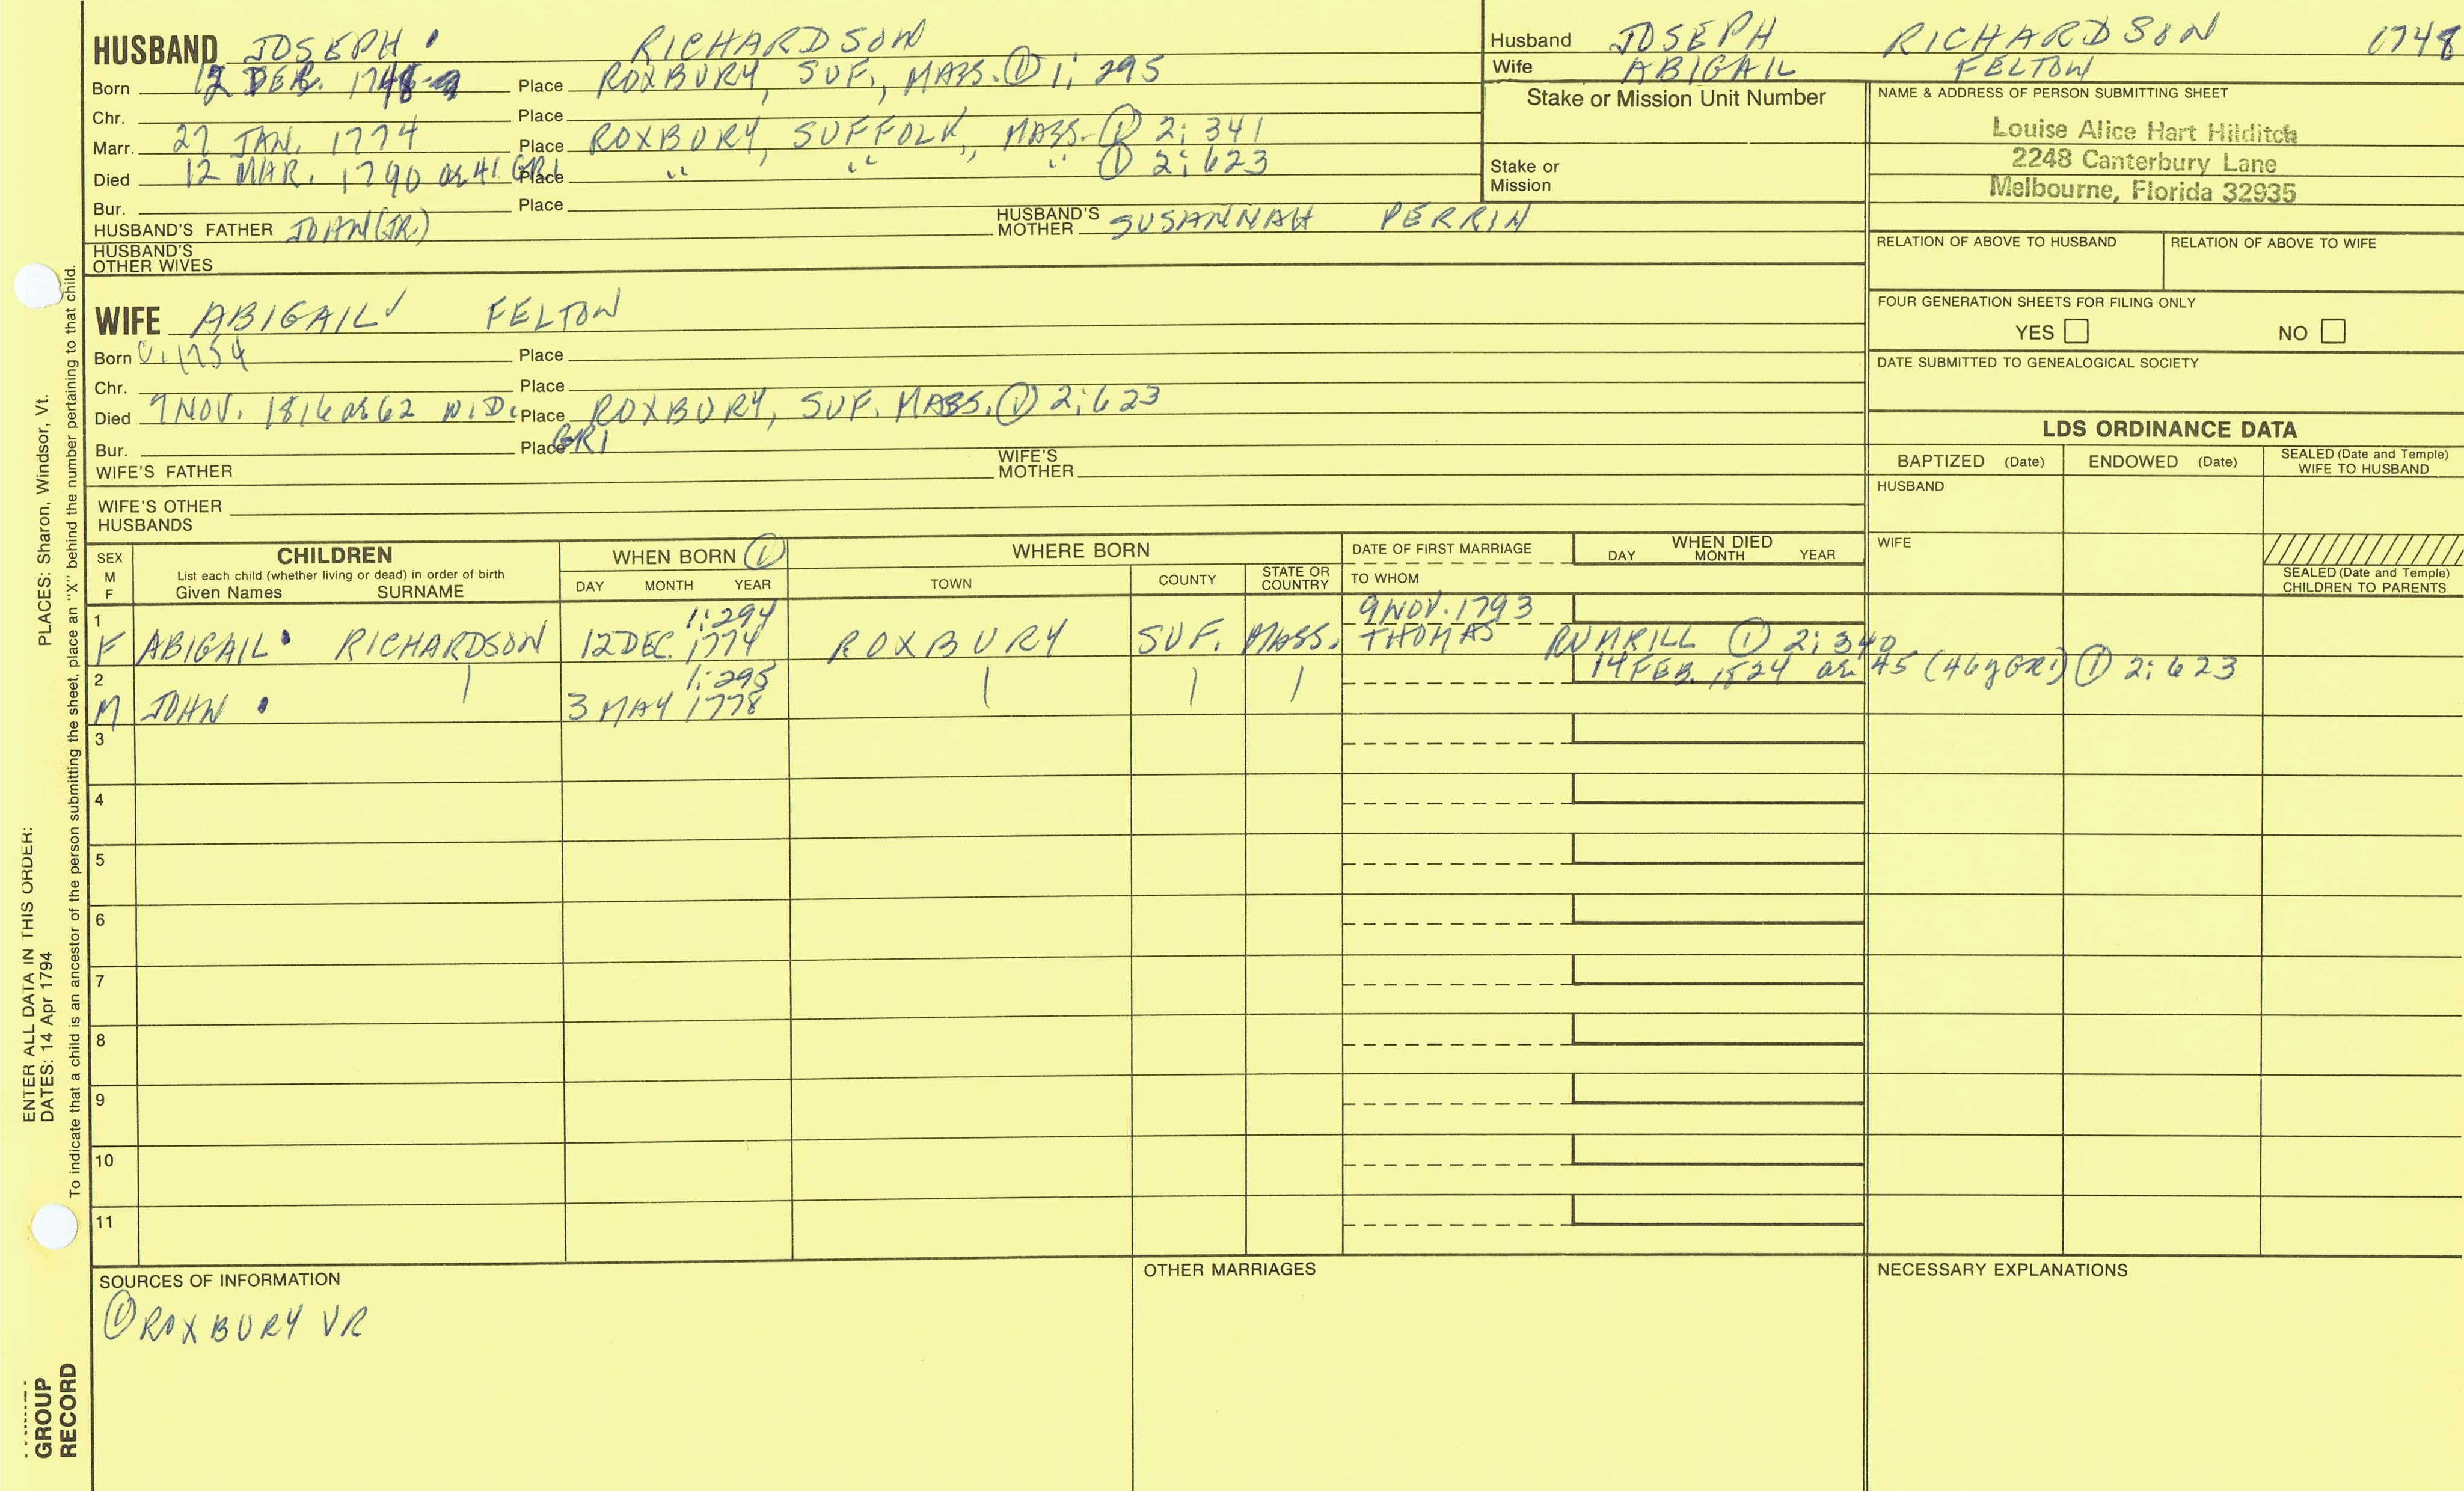 HUSBAND JOSEPH RICHARDSON
Born 12 DEC. 1748 Place ROXBURY, SUF., MASS. ① 1; 295
Chr. Place
Marr. 27 JAN. 1774 Place ROXBURY, SUFFOLK, MASS. ① 2; 341
Died 12 MAR. 1790 as 41 GR1 Place " " " ① 2; 623
Bur. Place
HUSBAND'S FATHER JOHN (JR.) HUSBAND'S MOTHER SUSANNAH PERRIN
HUSBAND'S OTHER WIVES
WIFE ABIGAIL FELTON
Born C. 1754 Place
Chr. Place
Died 9 NOV. 1816 as 62 WID. Place ROXBURY, SUF. MASS. ① 2; 623
Bur. Place GR1
WIFE'S FATHER WIFE'S MOTHER
WIFE'S OTHER HUSBANDS
Husband JOSEPH RICHARDSON 1748
Wife ABIGAIL FELTON
Stake or Mission Unit Number
Stake or Mission
NAME & ADDRESS OF PERSON SUBMITTING SHEET
Louise Alice Hart Hilditch
2248 Canterbury Lane
Melbourne, Florida 32935
RELATION OF ABOVE TO HUSBAND RELATION OF ABOVE TO WIFE
FOUR GENERATION SHEETS FOR FILING ONLY
YES NO
DATE SUBMITTED TO GENEALOGICAL SOCIETY
LDS ORDINANCE DATA
BAPTIZED (Date) ENDOWED (Date) SEALED (Date and Temple) WIFE TO HUSBAND
HUSBAND
WIFE
SEALED (Date and Temple) CHILDREN TO PARENTS
SEX M F CHILDREN WHEN BORN ① WHERE BORN DATE OF FIRST MARRIAGE WHEN DIED
List each child (whether living or dead) in order of birth
Given Names SURNAME DAY MONTH YEAR TOWN COUNTY STATE OR COUNTRY TO WHOM DAY MONTH YEAR
1 1; 294 9 NOV. 1793
F ABIGAIL RICHARDSON 12 DEC. 1774 ROXBURY SUF. MASS. THOMAS RUMRILL ① 2; 340
2 1; 295 14 FEB. 1824 as 45 (46y GR1) ① 2; 623
M JOHN 3 MAY 1778
3
4
5
6
7
8
9
10
11
SOURCES OF INFORMATION
① ROXBURY VR
OTHER MARRIAGES
NECESSARY EXPLANATIONS
ENTER ALL DATA IN THIS ORDER:
DATES: 14 Apr 1794
PLACES: Sharon, Windsor, Vt.
To indicate that a child is an ancestor of the person submitting the sheet, place an "X" behind the number pertaining to that child.
GROUP
RECORD